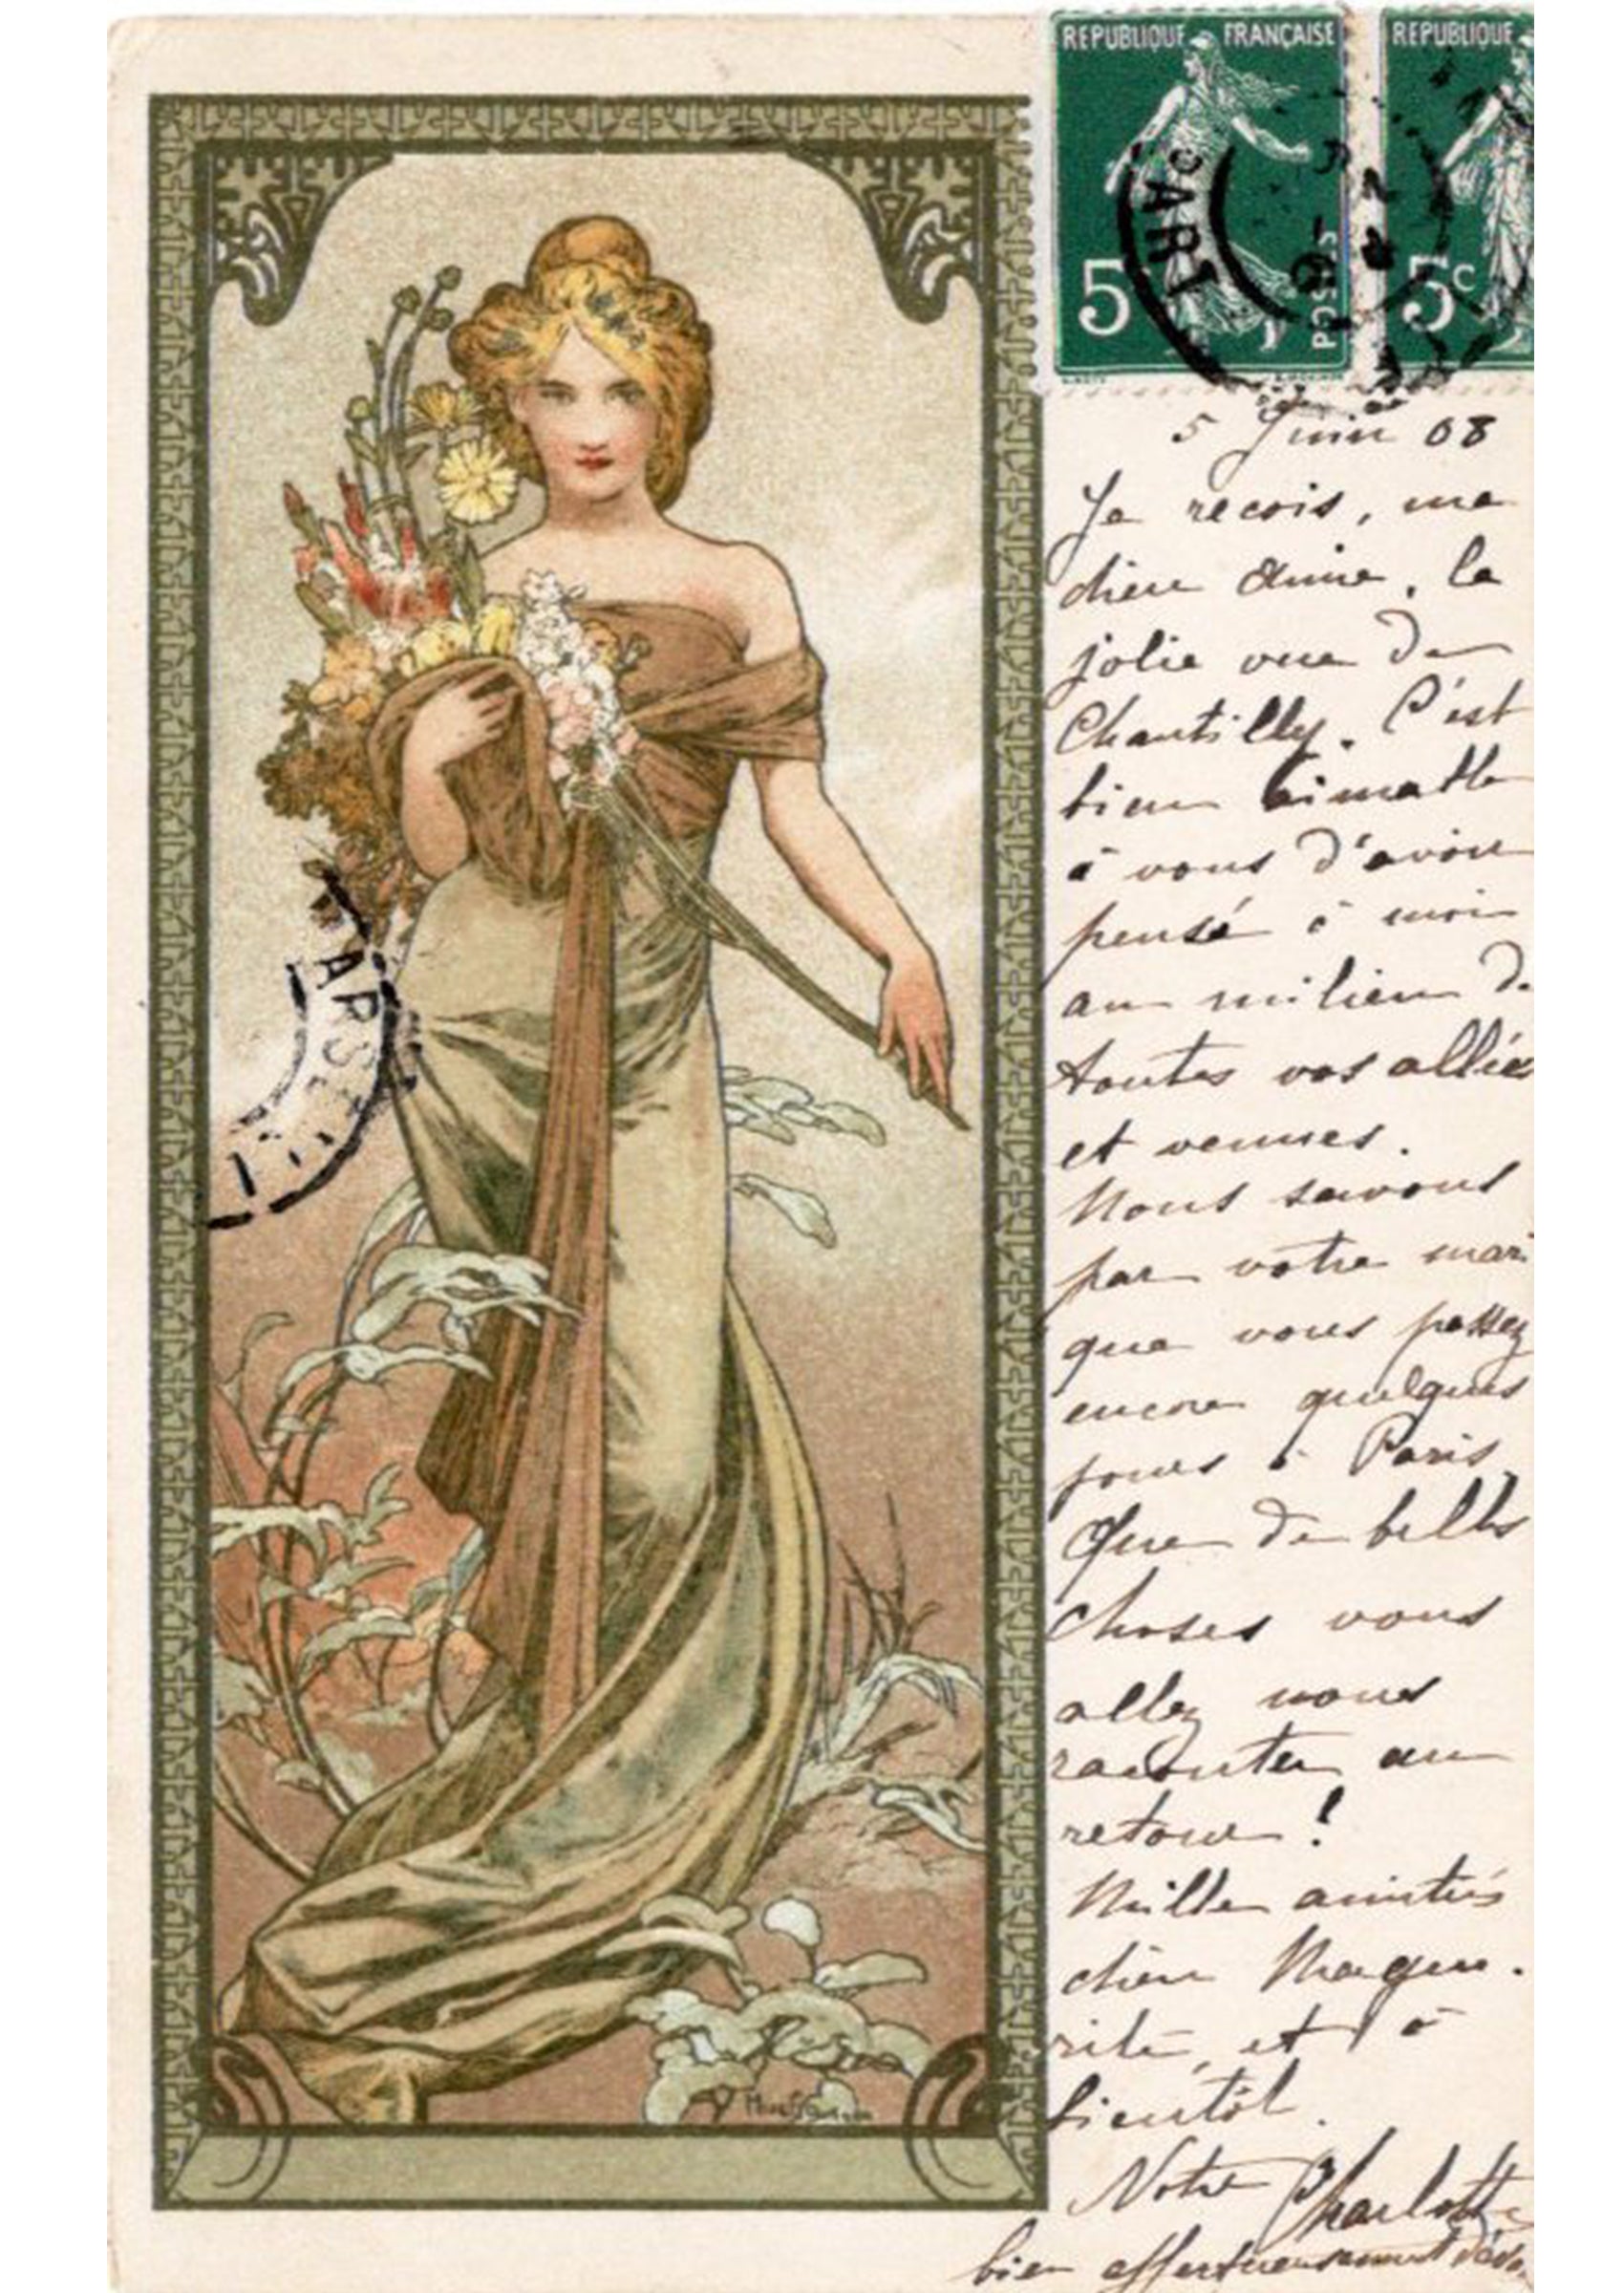 REPUBLIQUE FRANÇAISE
REPUBLIQUE
5
POSTES
5c
PARI
5 Juin 08
Je recois, ma
chère Amie, la
jolie vue de
Chantilly. C'est
bien aimable
à vous d'avoir
pensé à moi
au milieu de
toutes vos allées
et venues.
Nous savons
par votre mari
que vous passez
encore quelques
jours à Paris
Que de belles
choses vous
allez nous
raconter au
retour !
Mille amitiés
chère Margue-
rite, et à
bientôt.
Votre Charlotte
bien affectueusement